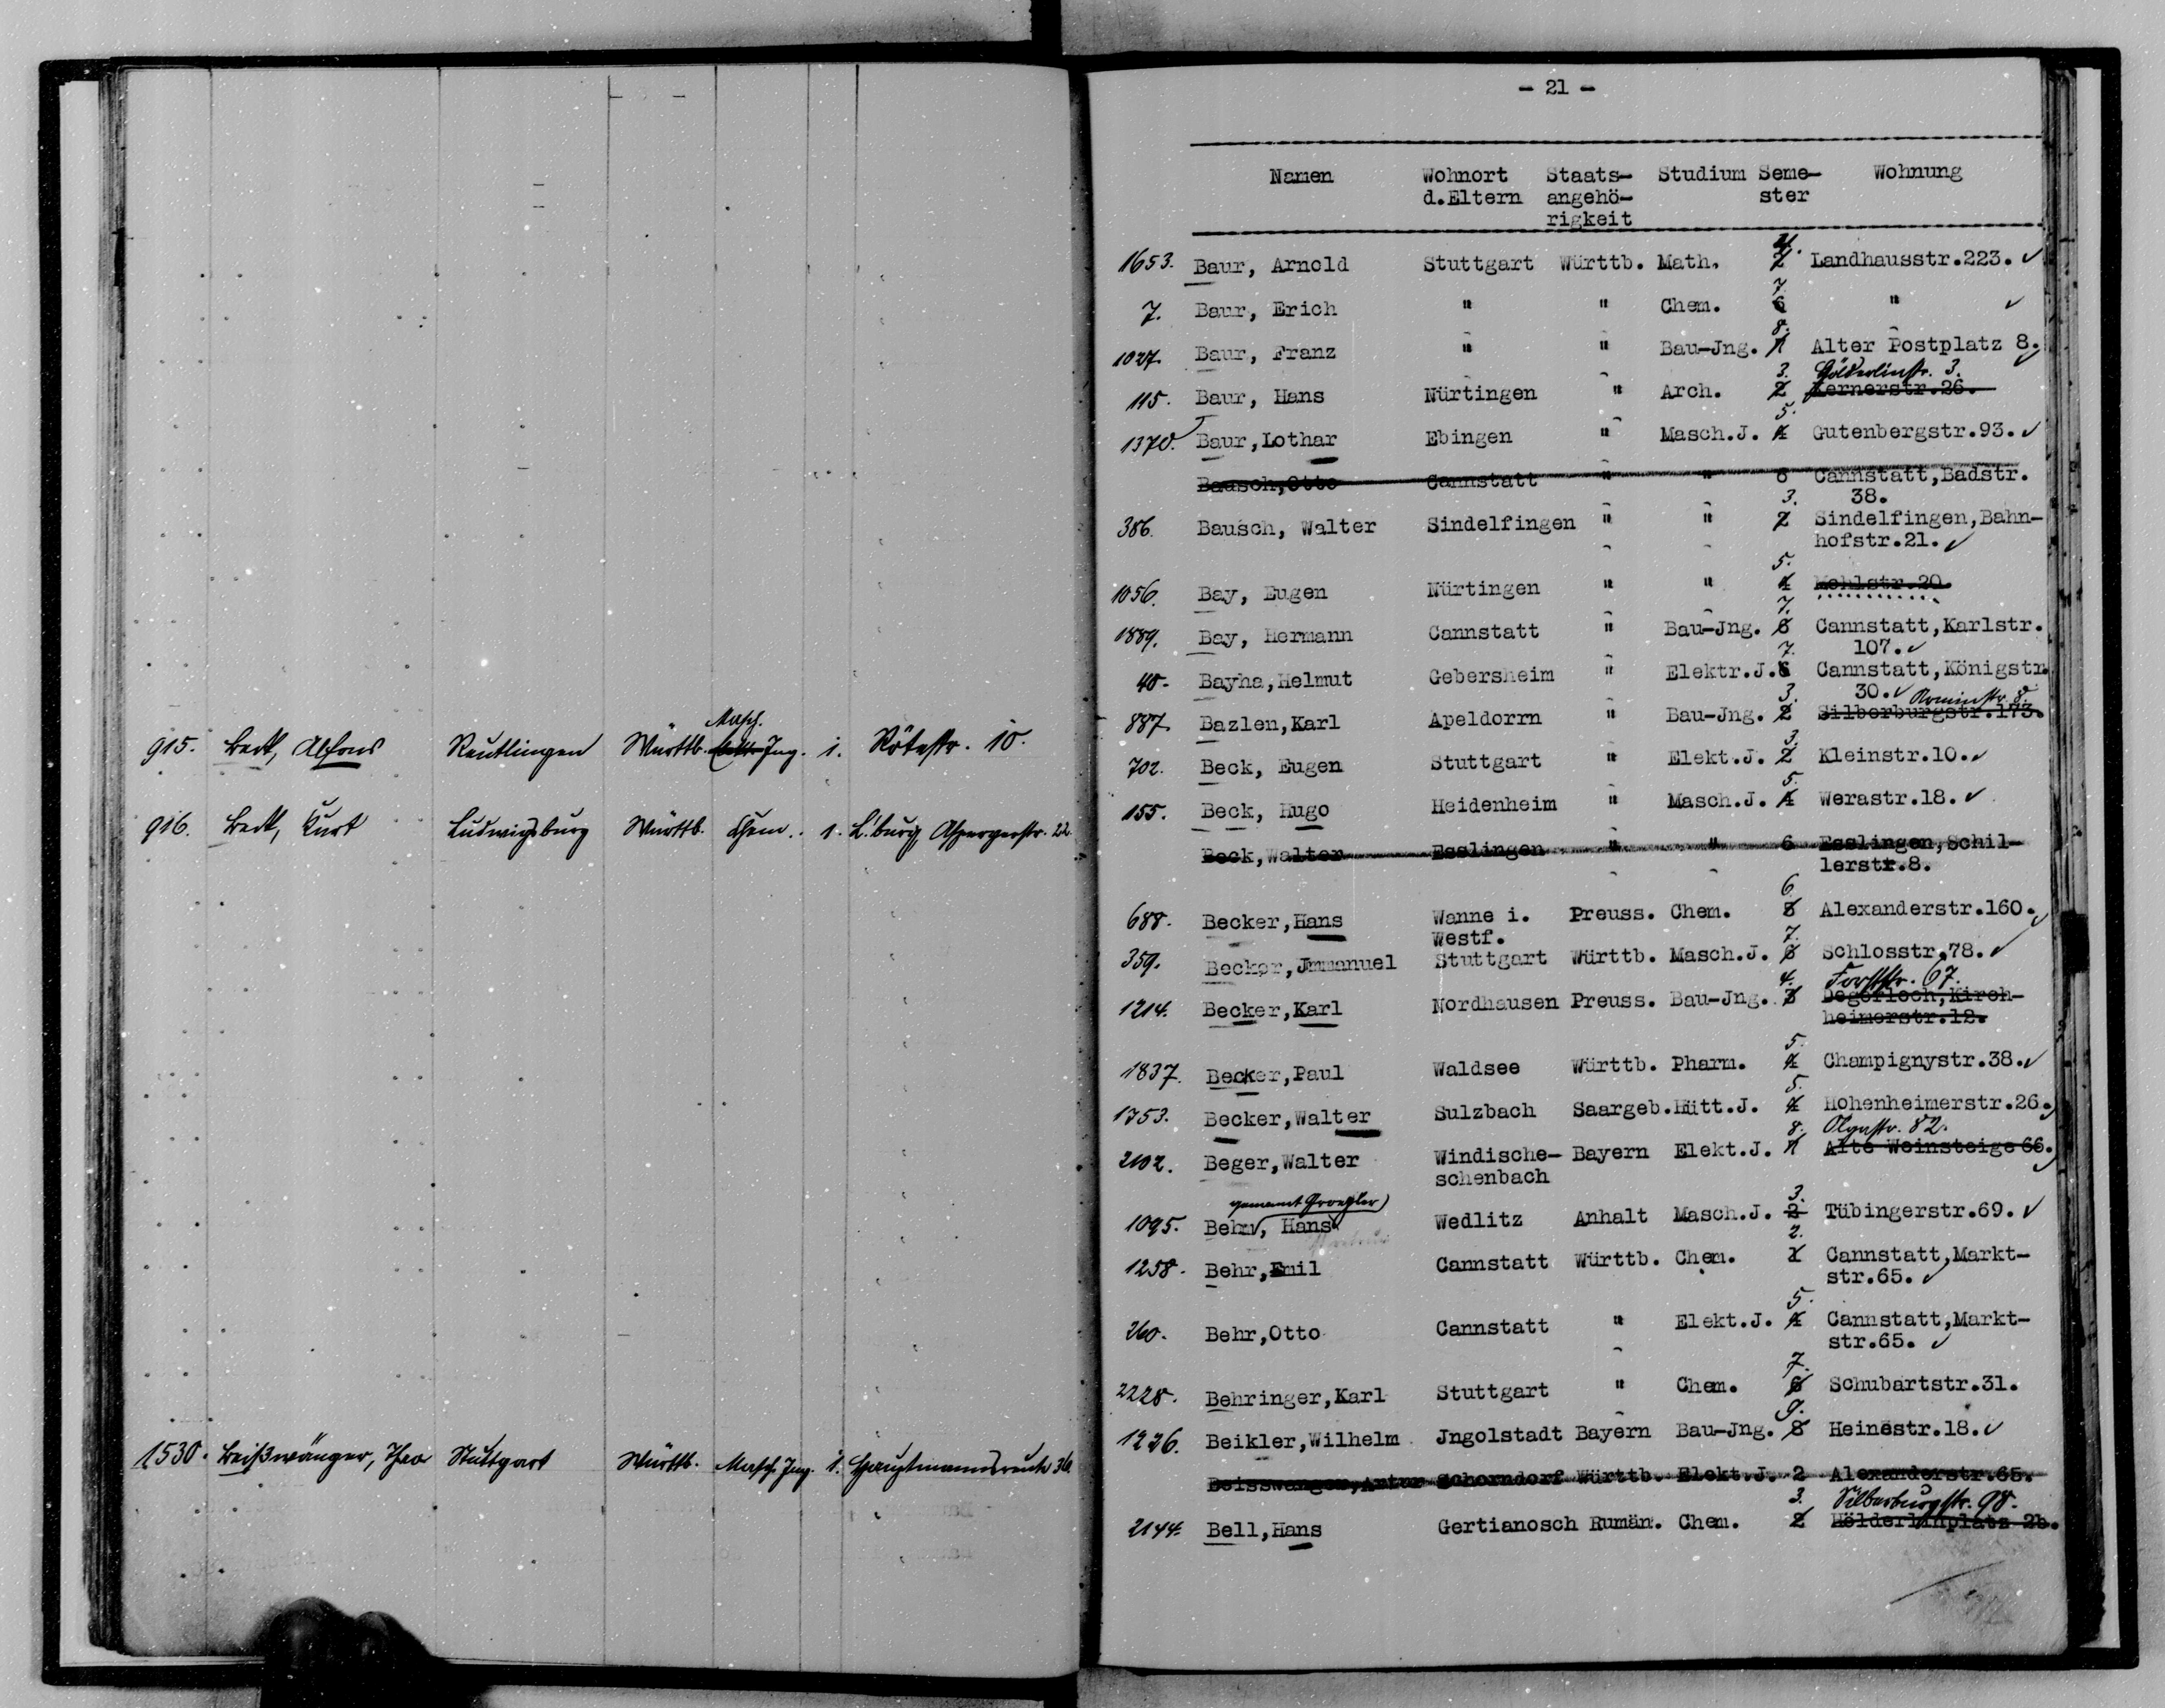 915. Beck, Alfons Reutlingen Württb. Masch. Ing. 1. Rötestr. 10.
916. Beck, Kurt Ludwigsburg Württb. Chem. 1. L'burg, Aspergerstr. 22.
1530. Beißwänger, Theo Stuttgart Württb. Masch. Ing. 1. Hauptmannsreute 36.
- 21 -
Namen Wohnort Staats- Studium Seme- Wohnung
d.Eltern angehö- ster
rigkeit
1653. Baur, Arnold Stuttgart Württb. Math. 2 Landhausstr.223. ✓
7.
7. Baur, Erich " " Chem. 6 " ✓
8.
1027. Baur, Franz " " Bau-Jng. 7 Alter Postplatz 8. ✓
3. Hölderlinstr. 3.
115. Baur, Hans Nürtingen " Arch. 2 Kernerstr.26.
5.
1370. Baur,Lothar Ebingen " Masch.J. 4 Gutenbergstr.93. ✓
Bausch,Otto Cannstatt " " 6 Cannstatt,Badstr.
3. 38.
386. Bausch, Walter Sindelfingen " " 2 Sindelfingen,Bahn-
hofstr.21. ✓
5.
1056. Bay, Eugen Nürtingen " " 4 Mohlstr.20
7.
1889. Bay, Hermann Cannstatt " Bau-Jng. 6 Cannstatt,Karlstr.
7. 107. ✓
40. Bayha,Helmut Gebersheim " Elektr.J. 6 Cannstatt,Königstr.
3. 30. ✓
887. Bazlen,Karl Apeldorrn " Bau-Jng. 2 Silberburgstr.173.
3.
702. Beck, Eugen Stuttgart " Elekt.J. 2 Kleinstr.10. ✓
5.
155. Beck, Hugo Heidenheim " Masch.J. 4 Werastr.18. ✓
Beck,Walter Esslingen " " 6 Esslingen,Schil-
lerstr.8.
6
688. Becker,Hans Wanne i. Preuss. Chem. 5 Alexanderstr.160. ✓
Westf. 7.
359. Becker,Jmmanuel Stuttgart Württb. Masch.J. 6 Schlosstr.78. ✓
4. Forststr. 67.
1214. Becker,Karl Nordhausen Preuss. Bau-Jng. 3 Degerloch,Kirch-
heimerstr.12.
5.
1837. Becker,Paul Waldsee Württb. Pharm. 4 Champignystr.38. ✓
5.
1753. Becker,Walter Sulzbach Saargeb.Hütt.J. 4 Hohenheimerstr.26. ✓
8. Olgastr. 82.
2102. Beger,Walter Windische- Bayern Elekt.J. 7 Alte Weinsteige 66. ✓
schenbach
genannt 3.
1095. Behm, Hans Wedlitz Anhalt Masch.J. 2 Tübingerstr.69. ✓
2.
1258. Behr,Emil Cannstatt Württb. Chem. 1 Cannstatt,Markt-
str.65. ✓
5.
260. Behr,Otto Cannstatt " Elekt.J. 4 Cannstatt,Markt-
str.65. ✓
7.
2228. Behringer,Karl Stuttgart " Chem. 6 Schubartstr.31.
9.
1226. Beikler,Wilhelm Jngolstadt Bayern Bau-Jng. 8 Heinestr.18. ✓
Beisswanger,Artur Schorndorf Württb. Elekt.J. 2 Alexanderstr.65.
3. Silberburgstr. 98.
2144. Bell,Hans Gertianosch Rumän. Chem. 2 Hölderlinplatz 2b.